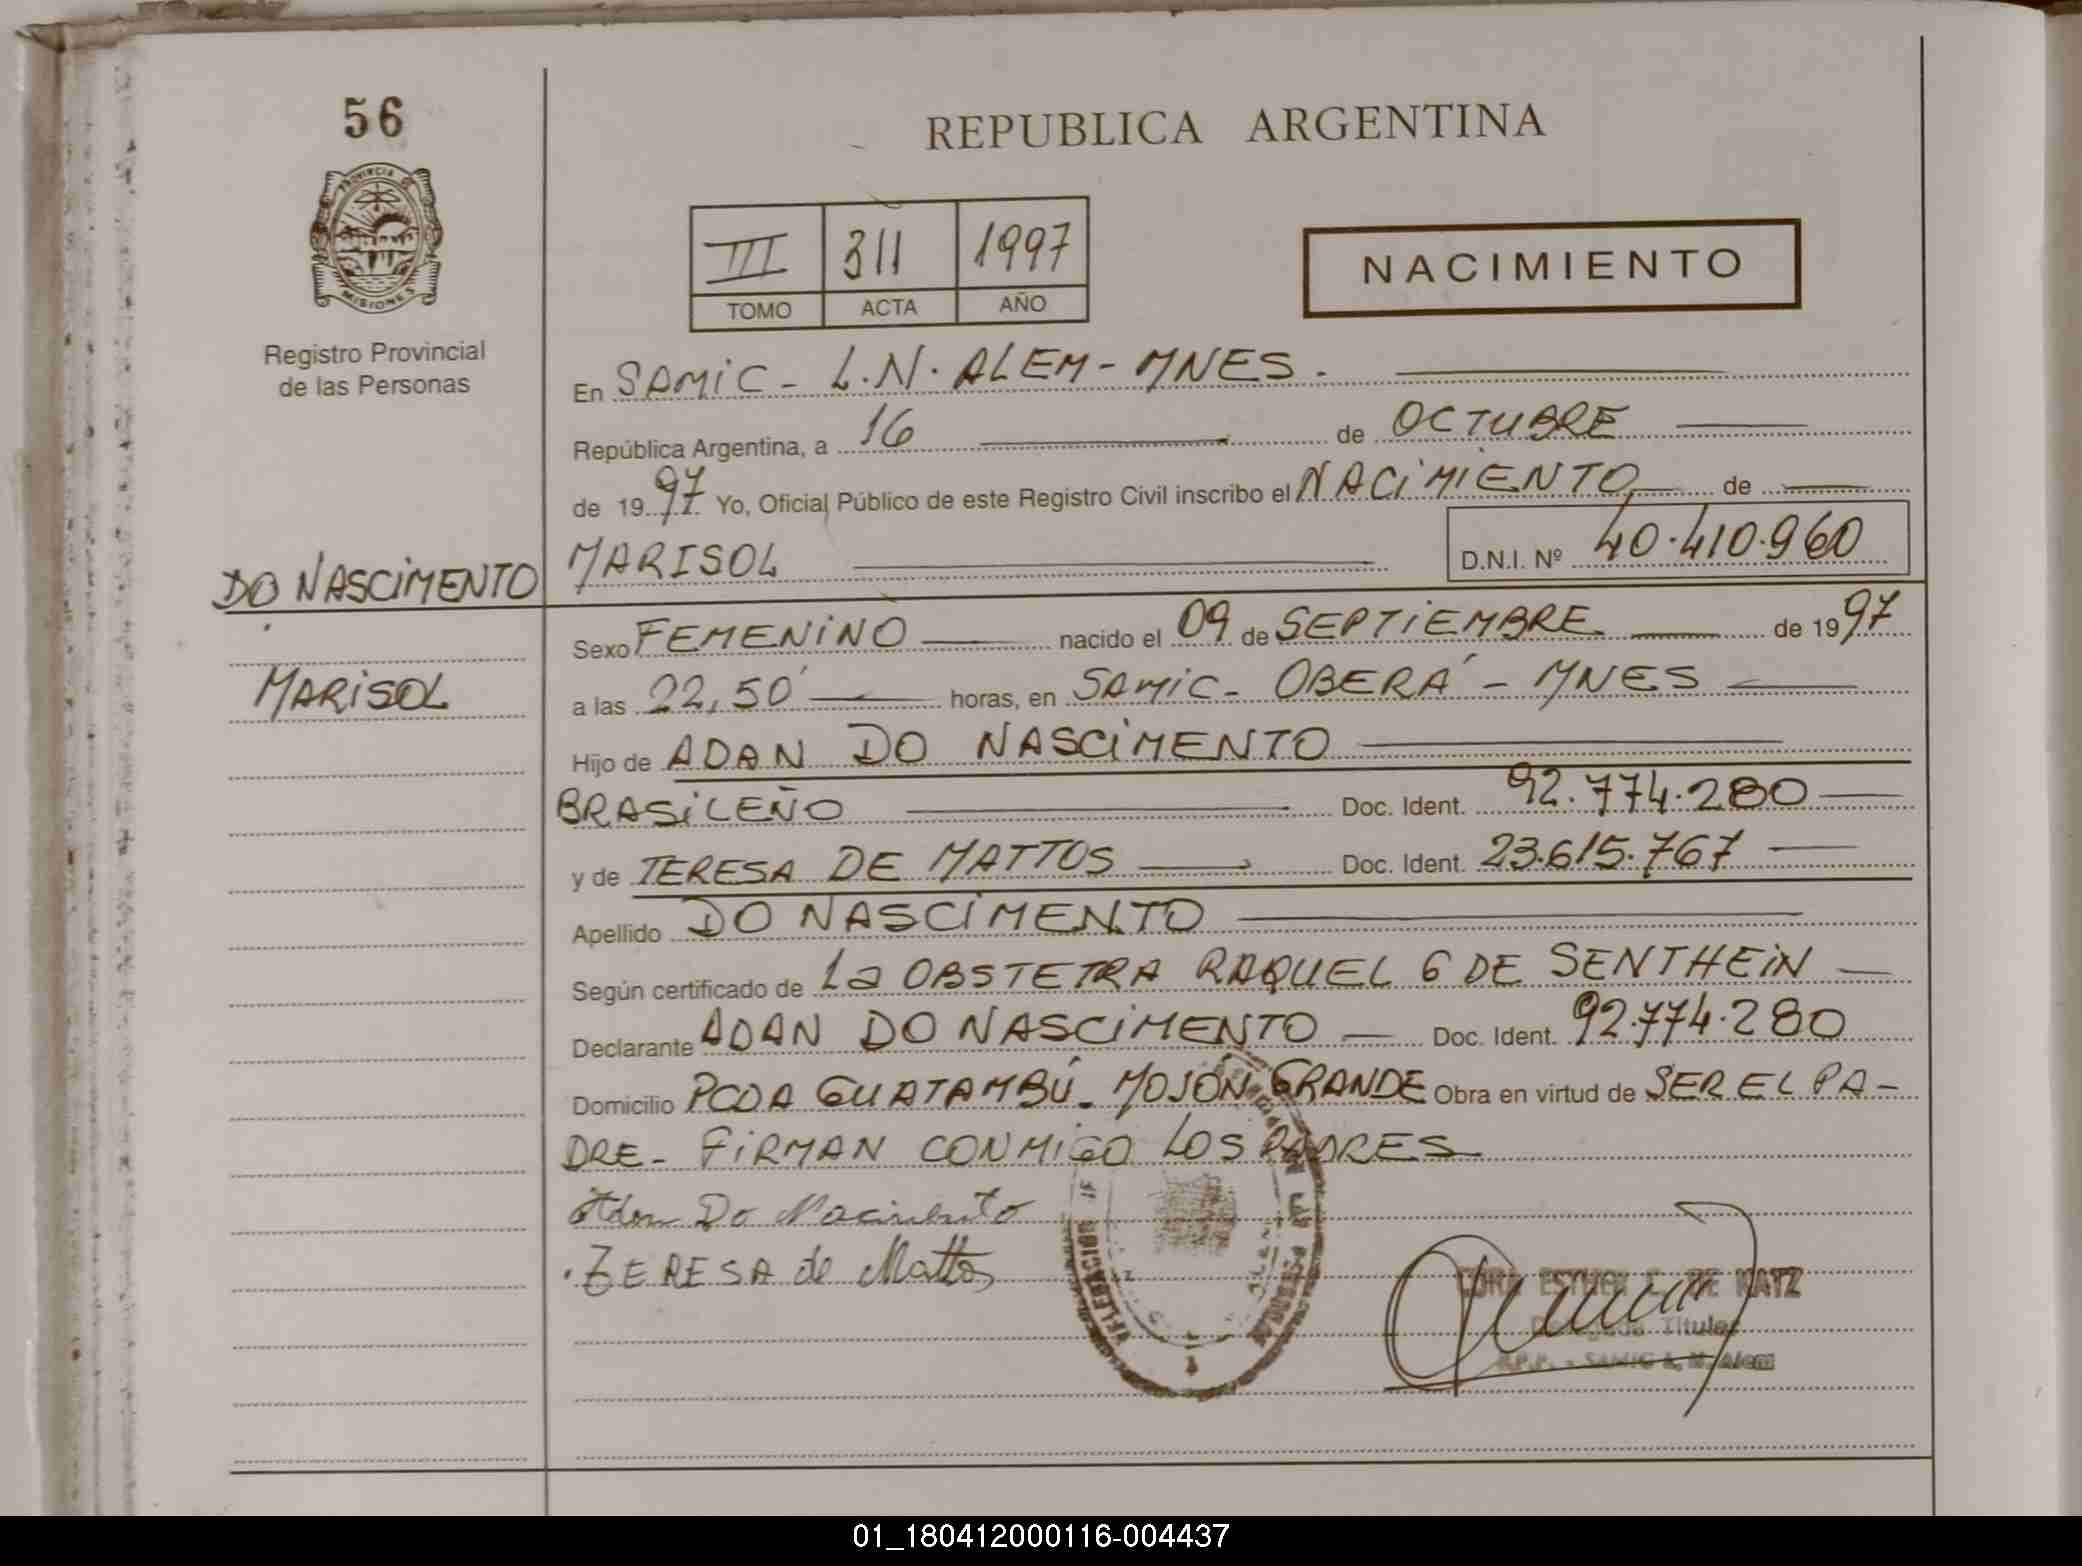 56
REPUBLICA ARGENTINA
PROVINCIA DE
MISIONES
Registro Provincial
de las Personas
III 311 1997
TOMO ACTA AÑO
NACIMIENTO
En SAMIC - L.N. ALEM - MNES.
República Argentina, a 16 de OCTUBRE
de 1997 Yo, Oficial Público de este Registro Civil inscribo el NACIMIENTO de
MARISOL D.N.I. Nº 40.410.960
DO NASCIMENTO
MARISOL
Sexo FEMENINO nacido el 09 de SEPTIEMBRE de 1997
a las 22,50 horas, en SAMIC - OBERÁ - MNES
Hijo de ADAN DO NASCIMENTO
BRASILEÑO Doc. Ident. 92.774.280
y de TERESA DE MATTOS Doc. Ident. 23.615.767
Apellido DO NASCIMENTO
Según certificado de La OBSTETRA RAQUEL G DE SENTHEIN
Declarante ADAN DO NASCIMENTO Doc. Ident. 92.774.280
Domicilio PCDA GUATAMBÚ - MOJÓN GRANDE Obra en virtud de SER EL PA-
DRE - FIRMAN CONMIGO LOS PADRES
Adan Do Nacimento
TERESA de Mattos
ESTHER C. DE KATZ
Delegada Titular
R.P.P. - SAMIC L. N. Alem
01_180412000116-004437